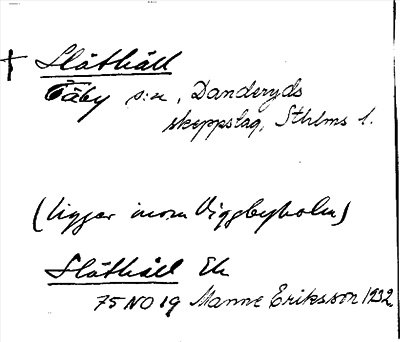 † Slåthäll
Täby s:n, Danderyds
skeppslag, Sthlms l.
(ligger inom Viggbyholm)
Slåthäll Ek
75 NO 19 Manne Eriksson 1932